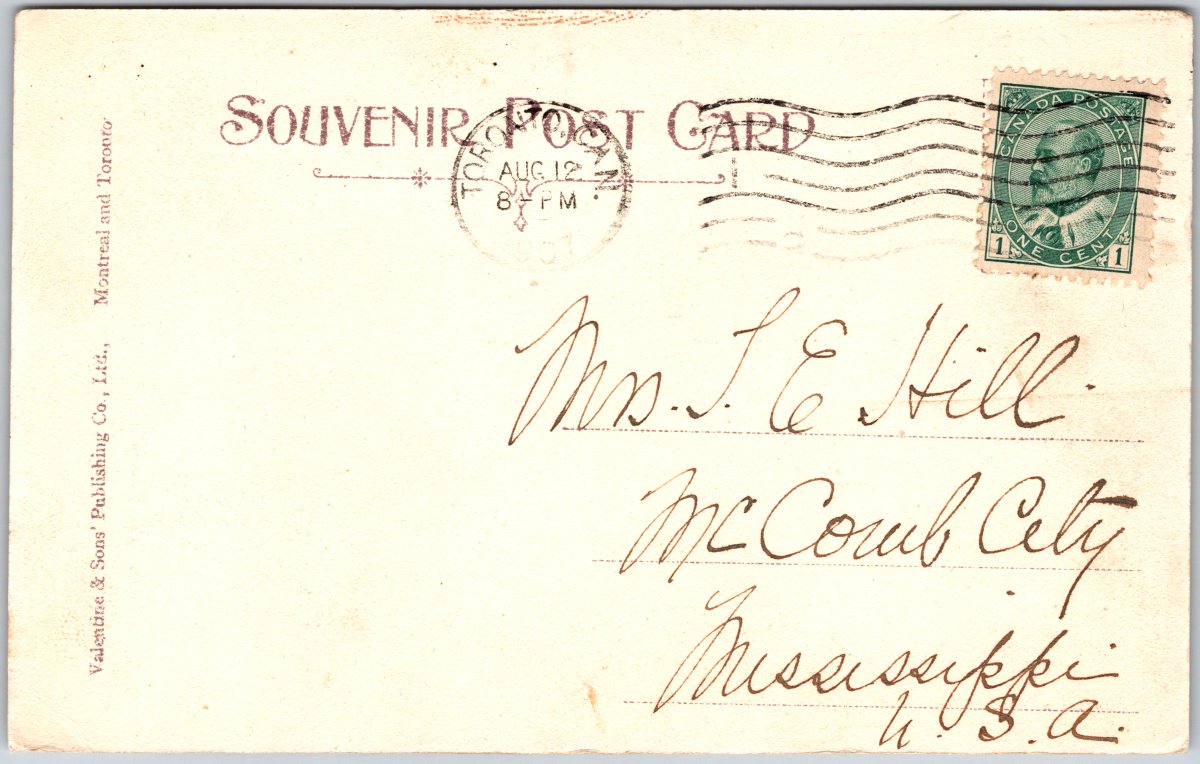 SOUVENIR POST CARD
TORONTO, CAN.
AUG 12
8-PM
CANADA POSTAGE
ONE CENT
1 1
Mrs. S. E Hill
McComb City
Mississippi
U. S. A.
Valentine & Sons' Publishing Co., Ltd., Montreal and Toronto